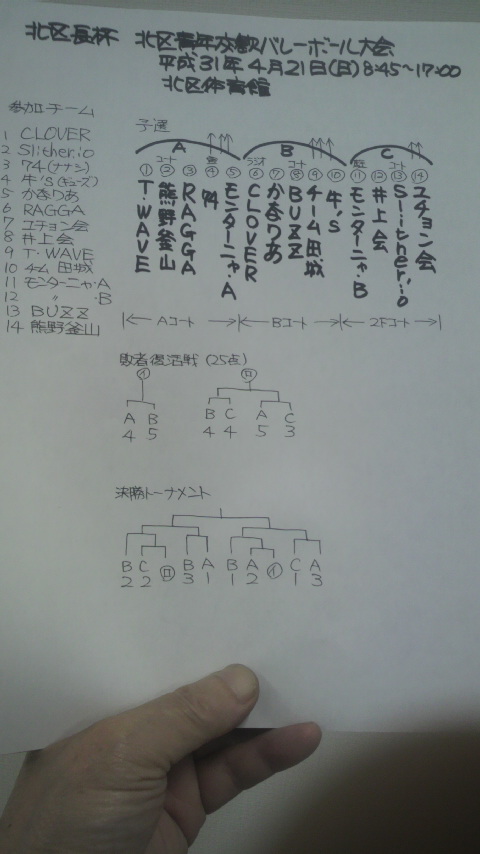 北区長杯 北区青年交歓バレーボール大会
平成31年4月21日(日)8:45~17:00
北区体育館
参加チーム
1 CLOVER
2 Slither.io
3 74(ナナシ)
4 牛'S(ギューズ)
5 かきりあ
6 RAGGA
7 ユチョン会
8 井上会
9 T・WAVE
10 チーム田城
11 モンターニャ・A
12 〃 ・B
13 BUZZ
14 熊野釜山
予選
A B C
コート コート コート
① ② ③ ④ ⑤ ⑥ ⑦ ⑧ ⑨ ⑩ ⑪ ⑫ ⑬ ⑭
T・WAVE
熊野釜山
RAGGA
74
モンターニャ・A
CLOVER
かきりあ
BUZZ
チーム田城
牛's
モンターニャ・B
井上会
Slither.io
ユチョン会
Aコート Bコート 2Fコート
敗者復活戦(25点)
イ ロ
A B B C A C
4 5 4 4 5 3
決勝トーナメント
B C ロ B A B A イ C A
2 2 3 1 1 2 1 3